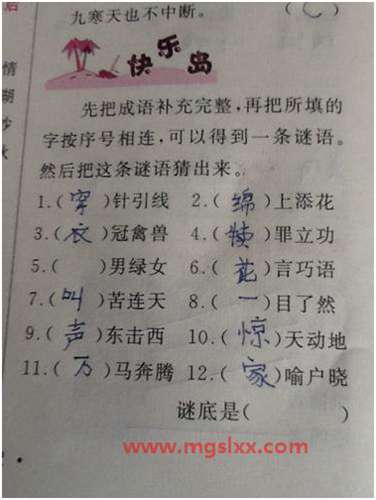 九寒天也不中断。 ( )
情
快乐岛
先把成语补充完整,再把所填的
字按序号相连,可以得到一条谜语。
然后把这条谜语猜出来。
1.(穿)针引线 2.(绵)上添花
3.(衣)冠禽兽 4.( )罪立功
5.( )男绿女 6.(花)言巧语
7.(叫)苦连天 8.(一)目了然
9.(声)东击西 10.(惊)天动地
11.(万)马奔腾 12.(家)喻户晓
谜底是( )
www.mgslxx.com